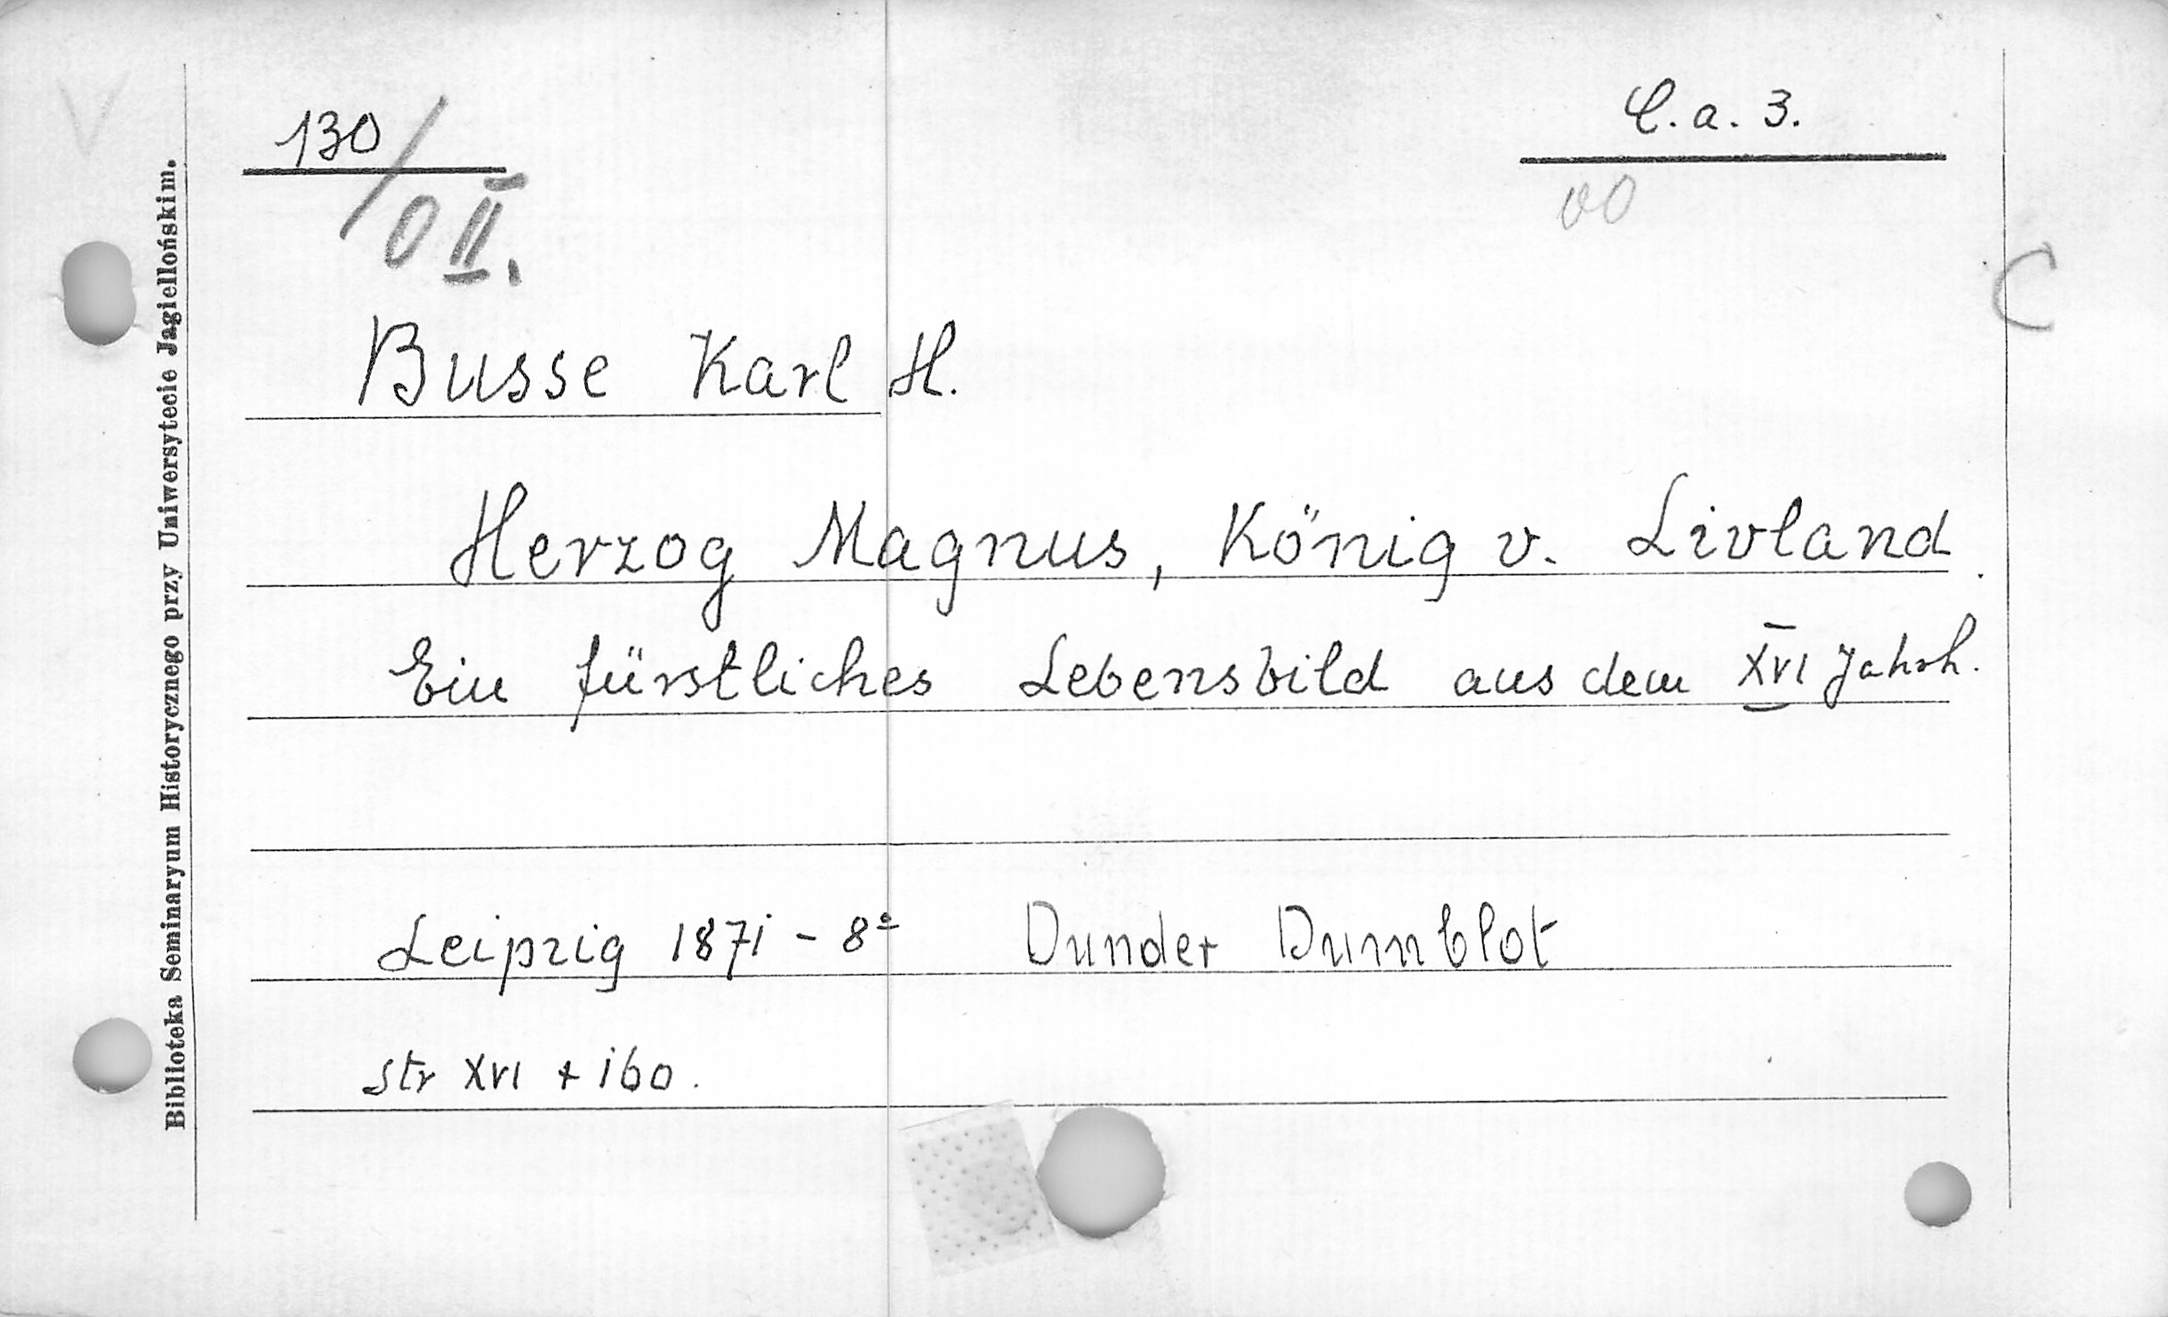 130/
C.a.3.
O II.
00
C
Busse Karl H.
Herzog Magnus, König v. Livland.
Ein fürstliches Lebensbild aus dem XVI Jahrh.
Leipzig 1871 - 8º Dunder Dumblot
str XVI + 160.
Biblioteka Seminaryum Historycznego przy Uniwersytecie Jagiellońskim.